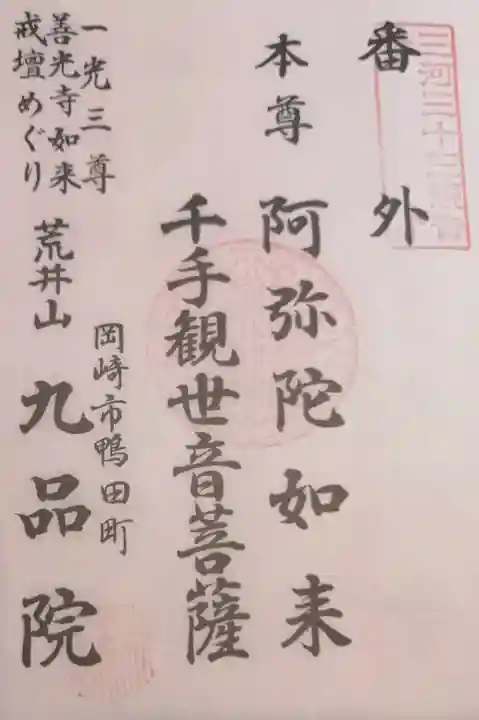 三河三十三観音
番外
本尊 阿弥陀如来
千手観世音菩薩
岡崎市鴨田町
一光三尊
善光寺如来
戒壇めぐり
荒井山 九品院